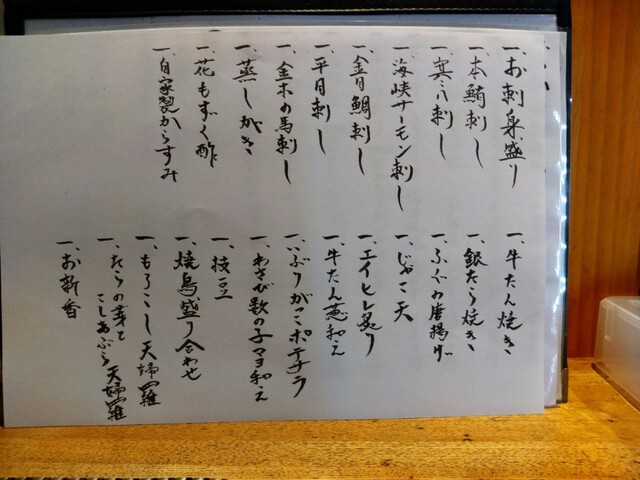 一、お刺身盛り
一、本鮪刺し
一、寒八刺し
一、海峡サーモン刺し
一、金目鯛刺し
一、平目刺し
一、金木の馬刺し
一、蒸しがき
一、花もずく酢
一、自家製からすみ
一、牛たん焼き
一、銀だら焼き
一、ふぐの唐揚げ
一、じゃこ天
一、エイヒレ炙り
一、牛たん葱和え
一、いぶりがっこポテサラ
一、わさび数の子マヨ和え
一、枝豆
一、焼鳥盛り合わせ
一、もろこし天婦羅
一、たらの芽と
こしあぶら天婦羅
一、お新香